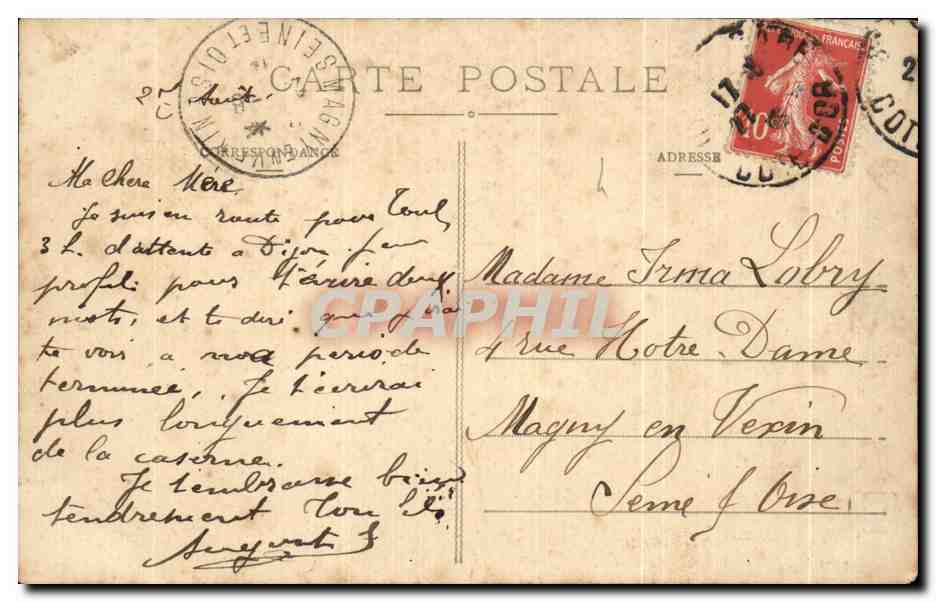 CARTE POSTALE
CORRESPONDANCE
ADRESSE
MAGNY EN VEXIN
SEINE ET OISE
POSTES
10
Ma chere Mère
Je suis en route pour Toul
3 h. d'attente a Dijon. J'en
profite pour t'écrire deux
mots, et te dire que j'irai
te voir a ma periode
terminée, Je t'ecrirai
plus longuement
de la caserne.
Je t'embrasse bien
tendrement Ton
Madame Irma Lobry
4 rue Notre Dame
Magny en Vexin
Seine & Oise
CPAPHIL